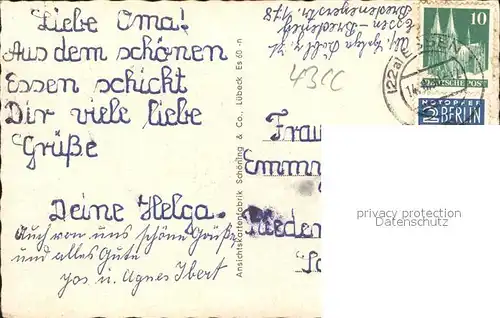 Liebe Oma!
Aus dem schönen
Essen schickt
Dir viele liebe
Grüße
Deine Helga.
Auch von uns schöne Grüße
und alles Gute
Jos u. Agnes Ibert
Ansichtskartenfabrik Schöning & Co., Lübeck Es 60 n
Essen Bredeney
178
43CC
10
DEUTSCHE POST
(22a) ESSEN
NOTOPFER
2 BERLIN
Frau
Emm
Nieden
privacy protection
Datenschutz